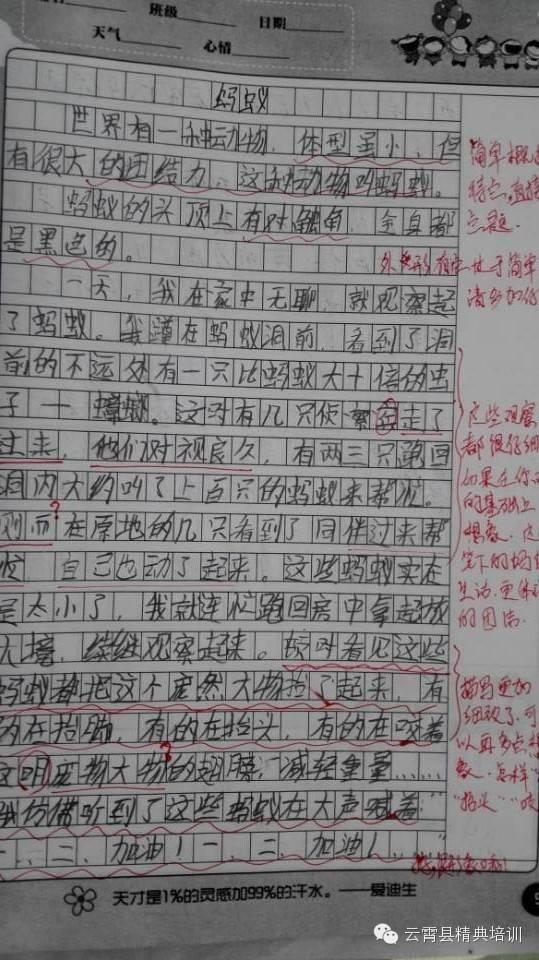 班级 日期
天气 心情
蚂蚁
世界有一种动物，体型虽小，但
有很大的团结力，这种动物叫蚂蚁。
蚂蚁的头顶上有对触角，全身都
是黑色的。
一天，我在家中无聊，就观察起
了蚂蚁。我蹲在蚂蚁洞前，看到了洞
前的不远处有一只比蚂蚁大十倍的虫
子——蟑螂。这时有几只侦察
走了
过来，他们对视良久，有两三只跑回
洞内大约叫了上百只的蚂蚁来帮忙。
则而在原地的几只看到了同伴过来帮
忙 自己也动了起来。这些蚂蚁实在
是太小了，我就连忙跑回房中拿起放
大镜，继续观察起来。顿时看见这些
蚂蚁都把这个庞然大物抬了起来，有
的在抬脚，有的在抬头，有的在咬着
这明庞物大物的翅膀，减轻重量……
我仿佛听到了这些蚂蚁在大声喊着“
一、二、加油！一、二、加油！……”
简单概
特点，直接
点题。
外形
简单
请多加
这些观察
都很仔细
如果在你
的基础上
想象，
笔下的蚂
生活，更体
的团结。
描写更加
细致了，可
以再多点想
象，怎样“
“抬头”“咬
天才是1%的灵感加99%的汗水。——爱迪生
云霄县精典培训